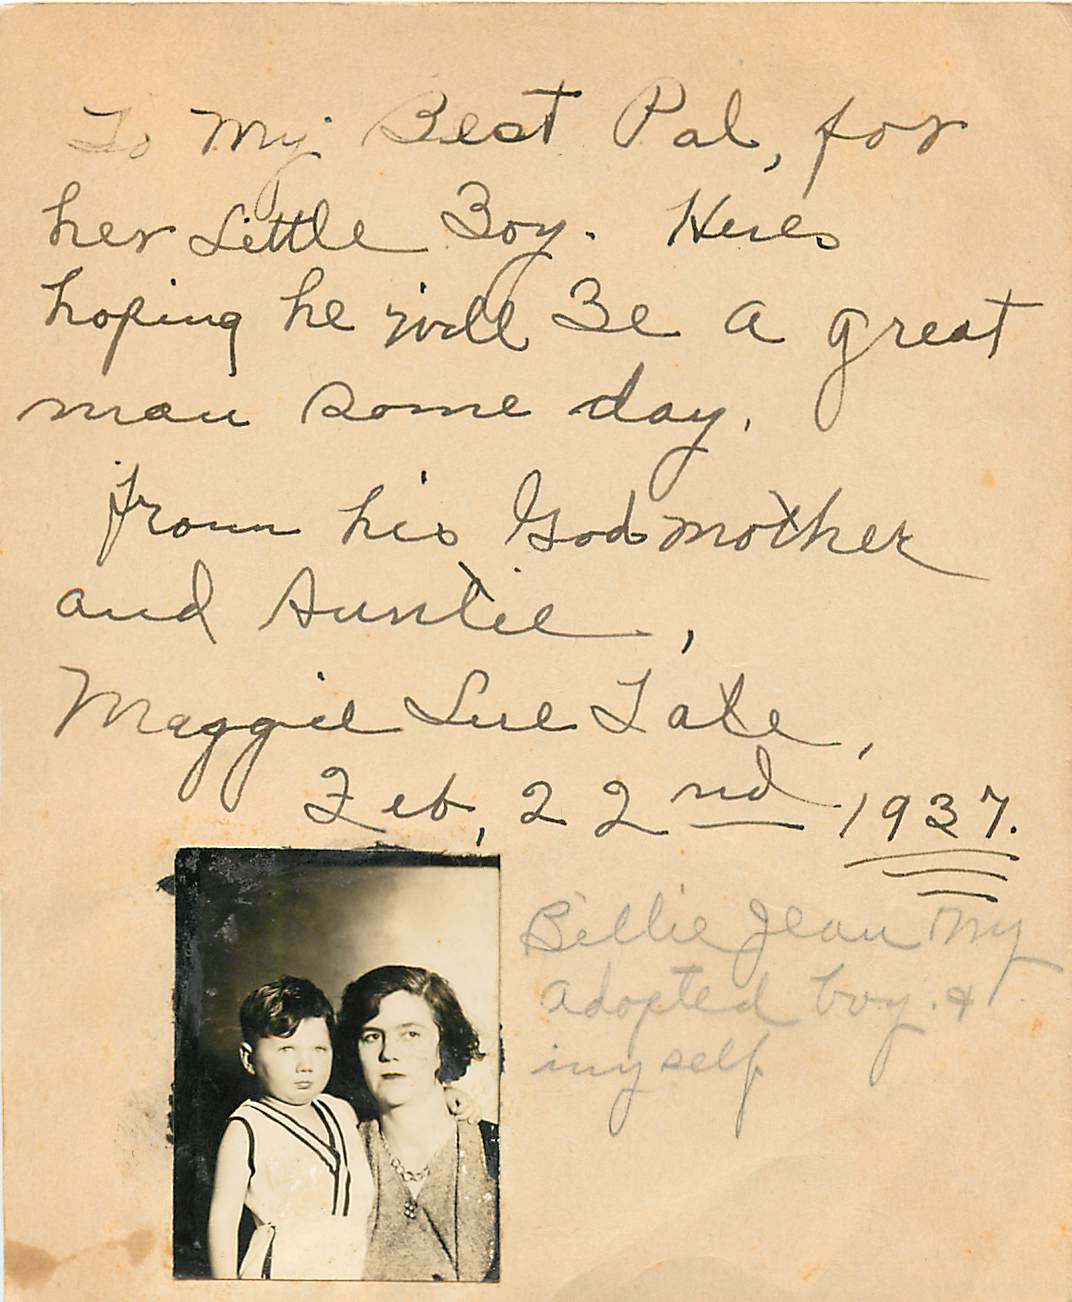 To My Best Pal, for
her Little Boy. Heres
hoping he will Be a great
man some day.
From his Godmother
and Auntie,
Maggie Sue Tate,
Feb, 22nd 1937.
Billie Jean My
adopted boy. &
myself